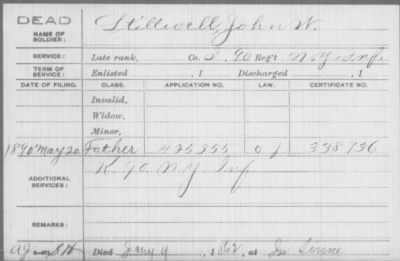 DEAD
NAME OF SOLDIER: Stillwell, John W.
SERVICE: Late rank, Co. I, 90 Reg't N.Y. Inf.
TERM OF SERVICE: Enlisted , 1 Discharged , 1
DATE OF FILING. CLASS. APPLICATION NO. LAW. CERTIFICATE NO.
Invalid,
Widow,
Minor,
1890 May 20 Father 425255 O L 338136
ADDITIONAL SERVICES: K. 90. N.Y. Inf
REMARKS:
Died , 1862, at